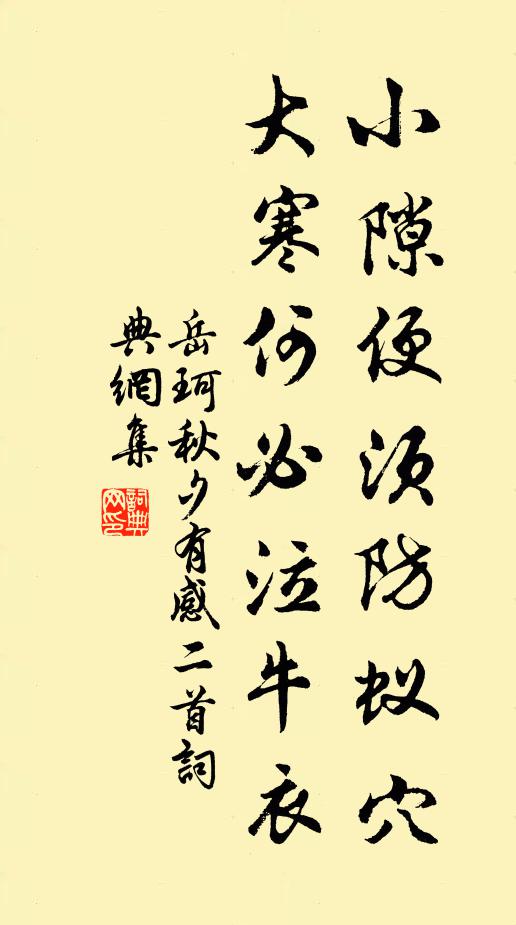 小隙便须防蚁穴
大寒何必泣牛衣
岳珂秋夕有感二首詞
典網集
詞典网印